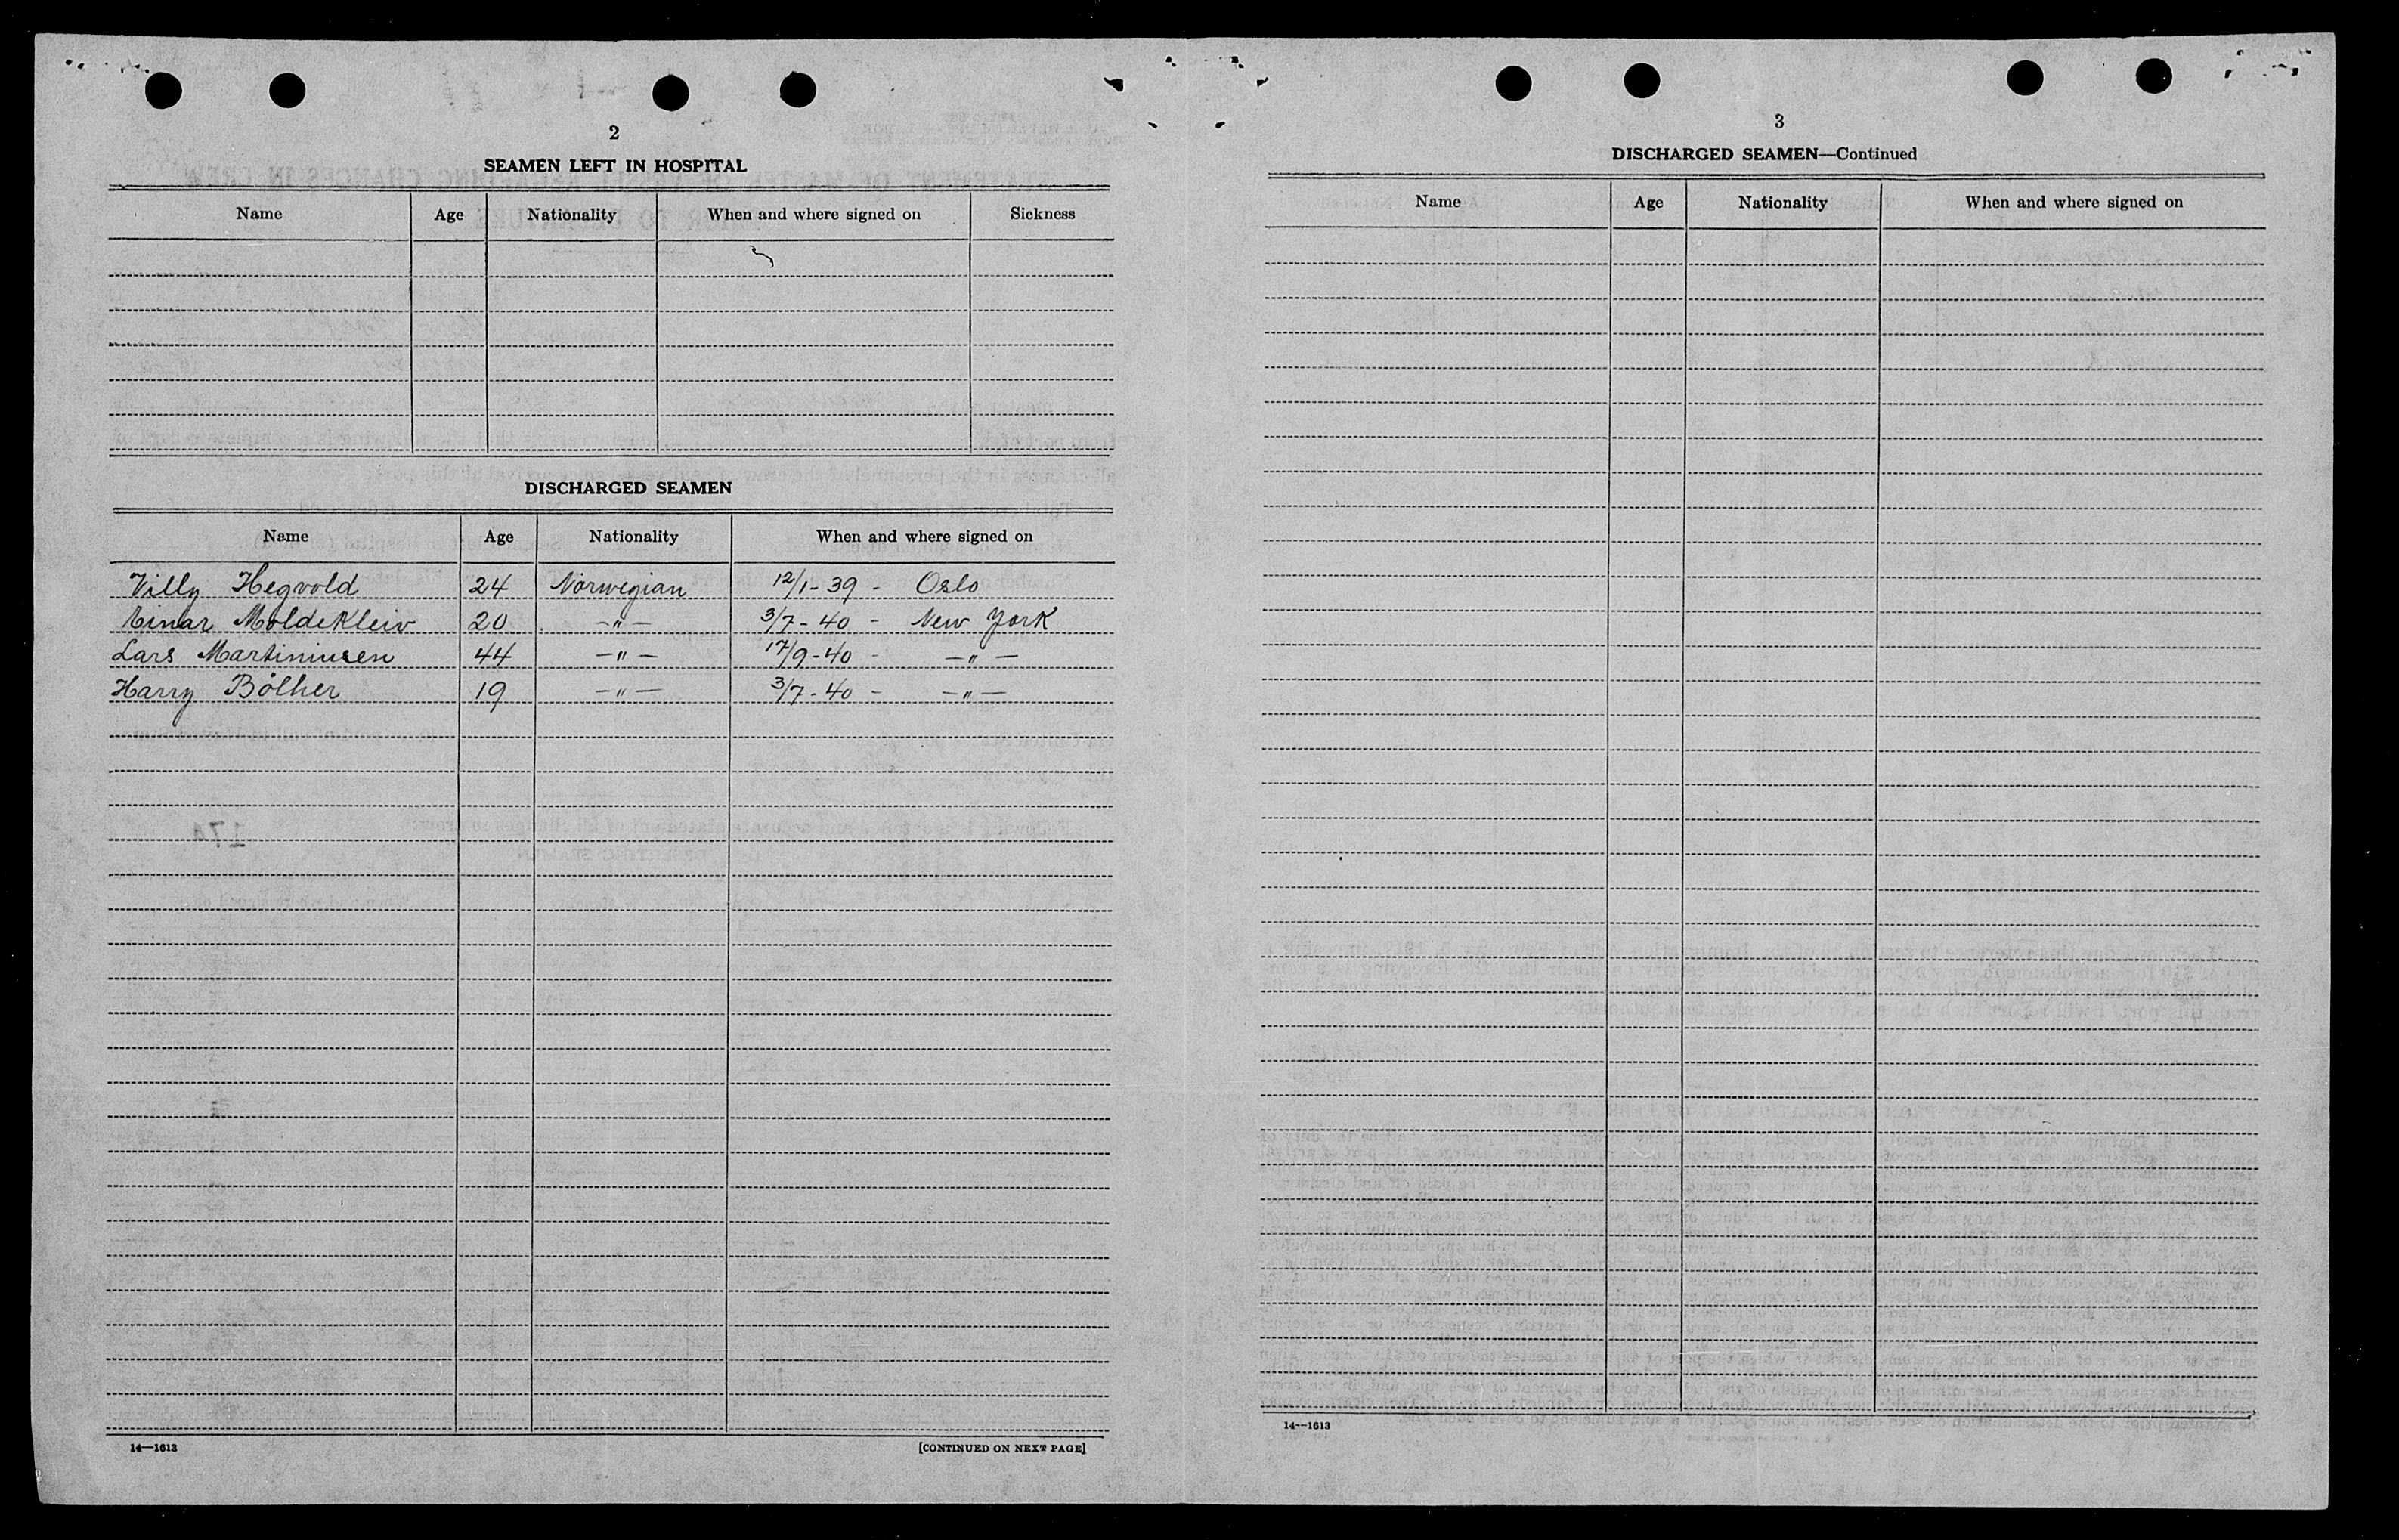 2
SEAMEN LEFT IN HOSPITAL
Name Age Nationality When and where signed on Sickness
DISCHARGED SEAMEN
Name Age Nationality When and where signed on
Villy Hegvold 24 Norwegian 12/1-39 - Oslo
Einar Moldekleiv 20 -"- 3/7-40 - New York
Lars Martiniusen 44 -"- 17/9-40 - -"-
Harry Bölher 19 -"- 3/7-40 - -"-
14—1613 [CONTINUED ON NEXT PAGE]
3
DISCHARGED SEAMEN—Continued
Name Age Nationality When and where signed on
14—1613